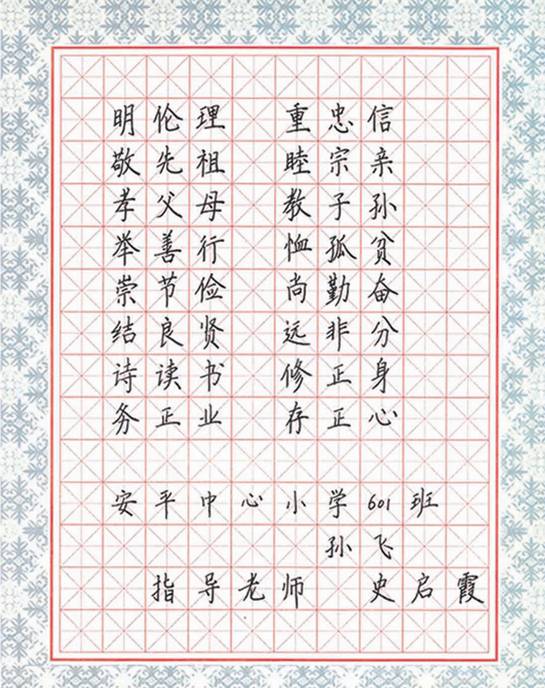 明伦理 重忠信
敬先祖 睦宗亲
孝父母 教子孙
举善行 恤孤贫
崇节俭 尚勤奋
结良贤 远非分
诗读书 修正身
务正业 存正心
安平中心小学601班
孙飞
指导老师 史启霞